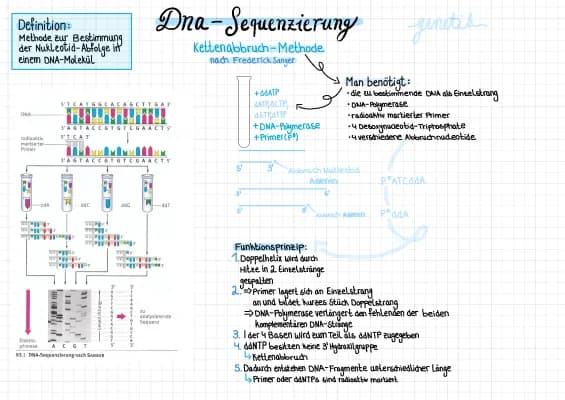 Dna-Sequenzierung
genetik
Definition:
Methode zur Bestimmung
der Nukleotid-Abfolge in
einem DNA-Molekül
Kettenabbruch-Methode
nach Frederick Sanger
+ddATP
dATP,dCTP,
dGTP,dTTP
+DNA-Polymerase
+Primer(P*)
Man benötigt:
• die zu bestimmende DNA als Einzelstrang
• DNA-Polymerase
• radioaktiv markierter Primer
• 4 Desoxynucleotid-Triphosphate
• 4 verschiedene Abbruchnucleotide
5'TCATGGCACAGCTTGA3'
DNA
3'AGTACCGTGTCGAACT5'
radioaktiv
markierter
Primer
5'TCA3'
3'AGTACCGTGTCGAACT5'
ddA
ddC
ddG
ddT
5' 3'
Abbruch Nukleotid
Adenin
5'
Abbruch Adenin
P*ATCddA
P*ddA
Elektro-
phorese
A C G T
3' 5'
5' 3'
zu
analysierende
Sequenz
DNA-Sequenzierung nach SANGER
Funktionsprinzip:
1. Doppelhelix wird durch
Hitze in 2 Einzelstränge
gespalten
2. ⇒Primer lagert sich an Einzelstrang
an und bildet kurzes Stück Doppelstrang
⇒DNA-Polymerase verlängert den fehlenden der beiden
komplementären DNA-Stränge
3. 1 der 4 Basen wird zum Teil als ddNTP zugegeben
4. ddNTP besitzen keine 3'Hydroxilgruppe
↳Kettenabbruch
5. Dadurch entstehen DNA-Fragmente unterschiedlicher Länge
↳Primer oder ddNTPs sind radioaktiv markiert